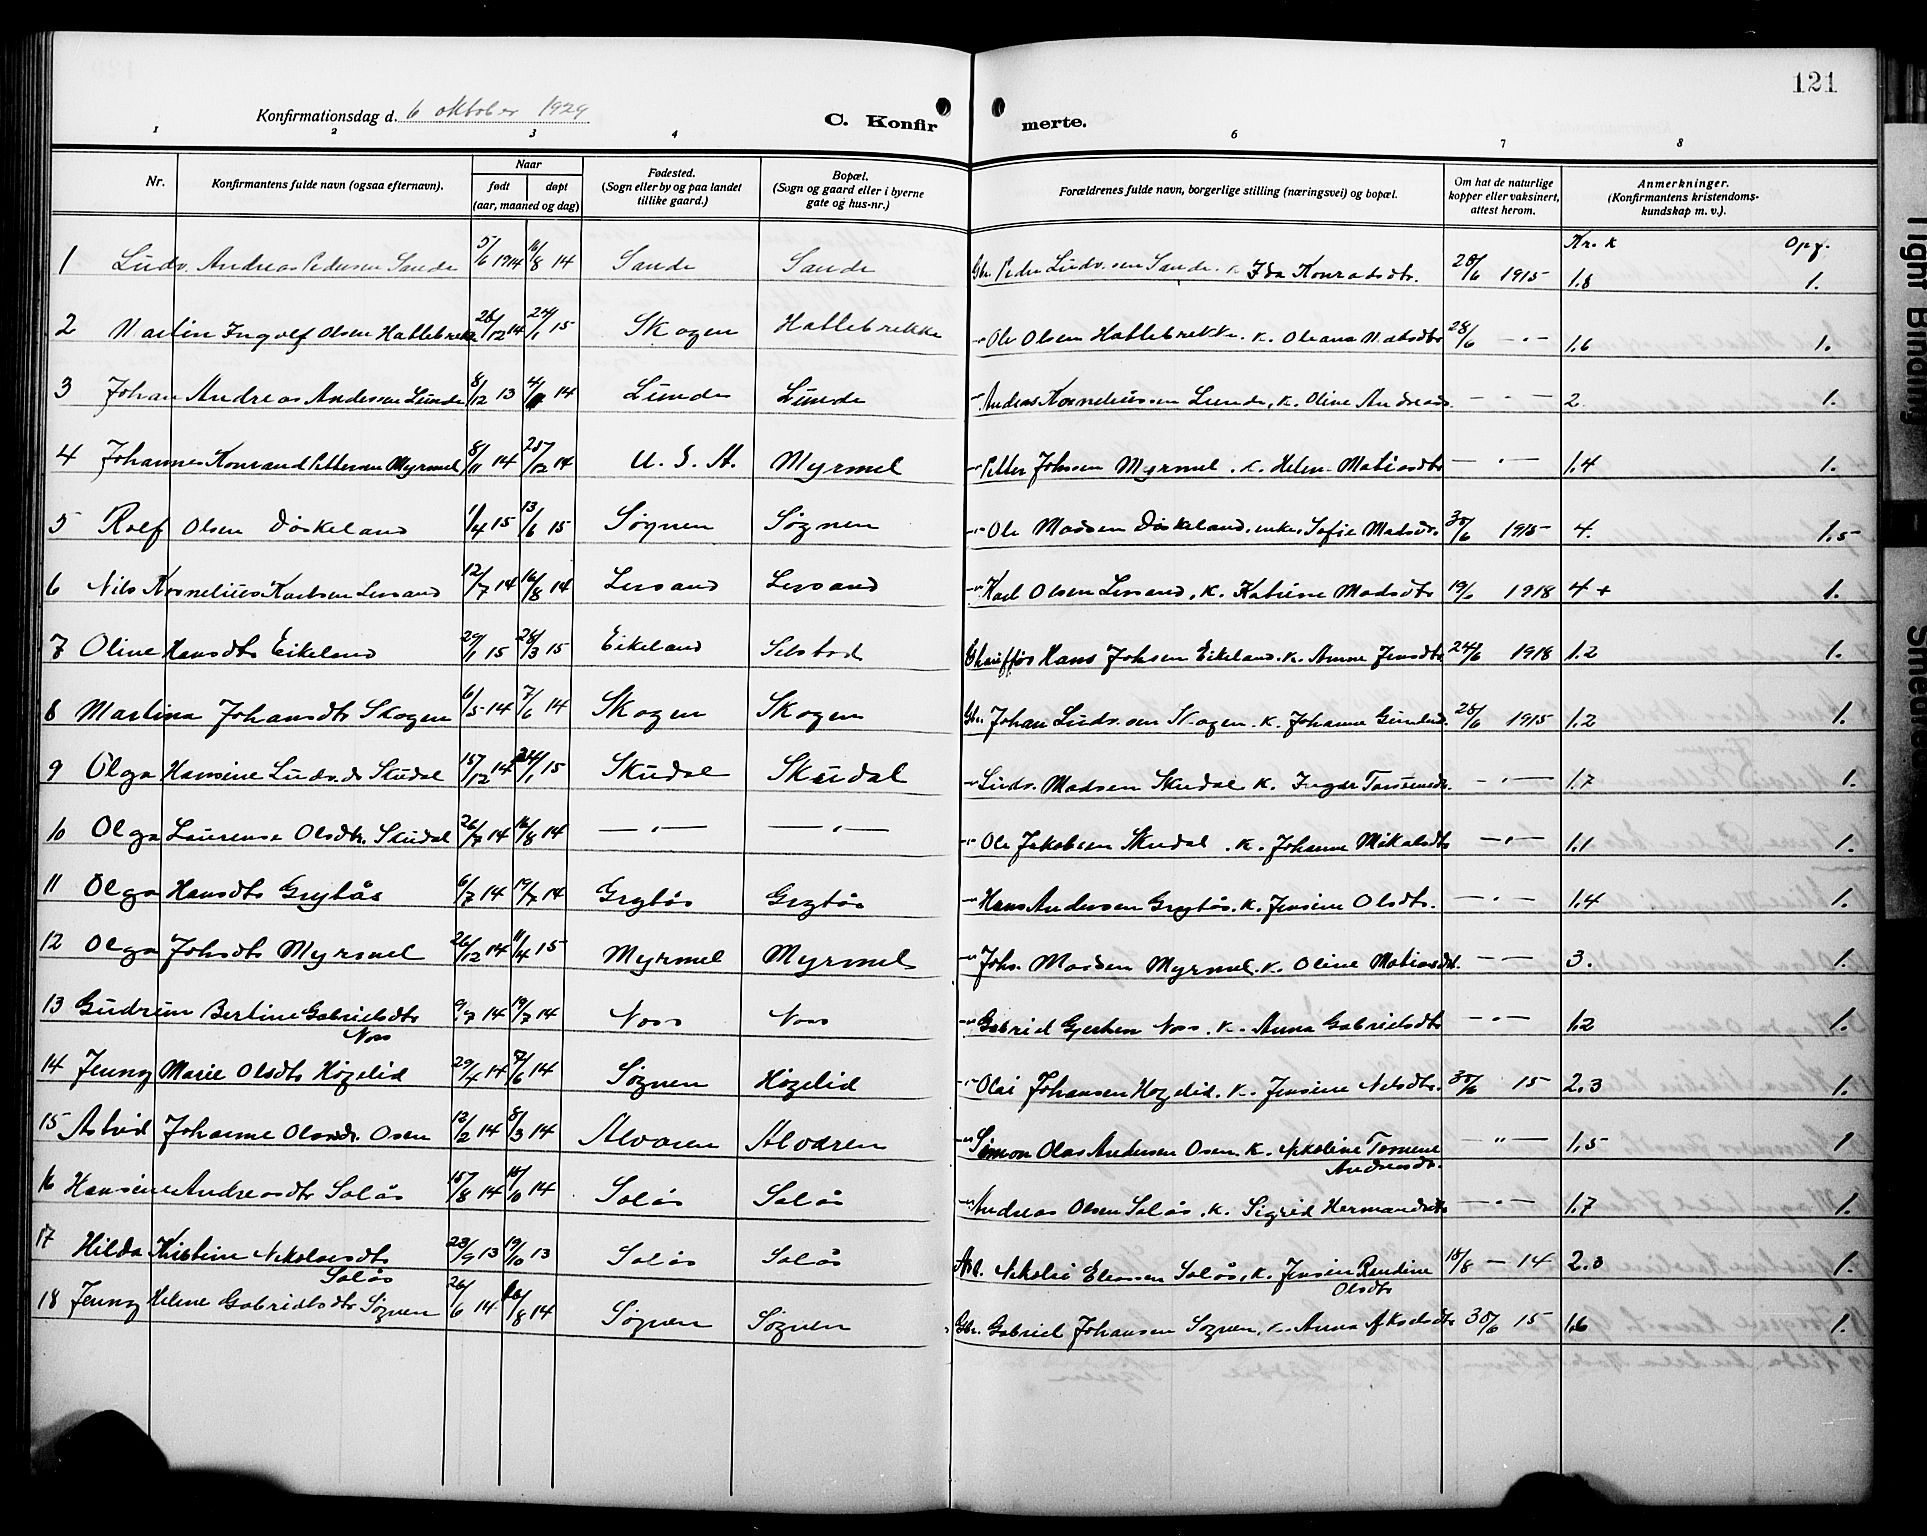 121
Konfirmationsdag d. 6 oktober 1929
C. Konfirmerte.
1 2 3 4 6 7 8
Nr. Konfirmantens fulde navn (ogsaa efternavn). Naar født døpt (aar, maaned og dag) Fødested. (Sogn eller by og paa landet tillike gaard.) Bopæl. (Sogn og gaard eller i byerne gate og hus-nr.) Forældrenes fulde navn, borgerlige stilling (næringsvei) og bopæl. Om hat de naturlige kopper eller vaksinert, attest herom. Anmerkninger. (Konfirmantens kristendoms-kundskap m. v.).
Kr. k Opf.
1 Ludv. Andreas Pedersen Sande 5/6 1914 16/8 14 Sande Sande Gbr. Peder Ludv.sen Sande. K. Ida Konradsdtr. 28/6 1915 1.8 1.
2 Martin Ingolf Olsen Hatlebrekke 26/12 14 24/1 15 Skogen Hatlebrekke -"- Ole Olsen Hatlebrekke. K. Oleana Matsdtr 28/6 -"- 1.6 1.
3 Johan Andreas Andersen Lunde 8/12 13 14 Lunde Lunde -"- Andreas Korneliussen Lunde, K. Oline Andreasd. -"- 2. 1.
4 Johannes Konrand Pettersen Myrmel 8/11 14 25/12 14 U. S. A. Myrmel -"- Petter Johnsen Myrmel. K. Helene Matiasdtr -"- 1.4 1.
5 Rolf Olsen Døskeland 11/4 15 13/6 15 Søgnen Søgnen -"- Ole Madsen Døskeland, enke, Sofie Madsdr. 30/6 1915 4. 1.5
6 Nils Kornelius Karlsen Lessand 12/7 14 16/8 14 Lessand Lessand -"- Karl Olsen Lessand, K. Katrine Madsdtr 19/6 1918 4+ 1.
7 Oline Hansdtr Eikeland 29/1 15 28/3 15 Eikeland Selstad Chauffør Hans Johsen Eikeland. K. Anne Jensdtr 24/6 1918 1.2 1.
8 Martina Johansdtr Skogen 6/5 14 7/6 14 Skogen Skogen Gbr. Johan Ludv.sen Skogen. K. Johanne 28/6 1915 1.2 1.
9 Olga Hansine Ludv.d. Skudal 15/12 14 24/1 15 Skudal Skudal -"- Ludv. Madsen Skudal K. Inger -"- 1.7 1.
10 Olga Laurense Olsdtr. Skudal 26/7 14 16/8 14 -"- -"- -"- Ole Jakobsen Skudal. K. Johanne Mikalsdtr -"- 1.1 1.
11 Olga Hansdtr Grytås 6/7 14 19/7 14 Grytås Grytås -"- Hans Andersen Grytås. K. Jensine Olsdtr. -"- 1.4 1.
12 Olga Johsdtr Myrmel 26/12 14 11/4 15 Myrmel Myrmel -"- Johs. Madsen Myrmel. K. Oline Matiasdtr. -"- 3. 1.
13 Gudrun Bertine Gabrielsdtr Noss 9/7 14 19/7 14 Noss Noss -"- Gabriel Gjertsen Noss. K. Anna Gabrielsdtr -"- 1.2 1.
14 Jenny Marie Olsdtr Høgelid 29/4 14 7/6 14 Søgnen Høgelid -"- Olai Johansen Høgelid. K. Jensine Nilsdtr. 30/6 15 2.3 1.
15 Astrid Johanne Olsendr. Osen 13/2 14 8/3 14 Alvoren Alvoren -"- Simon Olas Andersen Osen K. Nikoline Tomine Andreasdr. -"- 1.5 1
16 Hansine Andreasdtr Solås 15/8 14 18/10 14 Solås Solås -"- Andreas Olsen Solås, K. Sigrid Hermandsdtr -"- 1.7 1.
17 Hilda Kristine Nikolaisdtr Solås 23/9 13 19/10 13 Solås Solås Arb. Nikolai Eleasen Solås, K. Jensine Rendine Olsdtr 18/8 - 14 2.3 1.
18 Jenny Helene Gabrielsdtr Søgnen 26/6 14 16/8 14 Søgnen Søgnen Gbr. Gabriel Johansen Søgnen, K. Anna Akseldtr 30/6 15 1.6 1.
Tight Binding